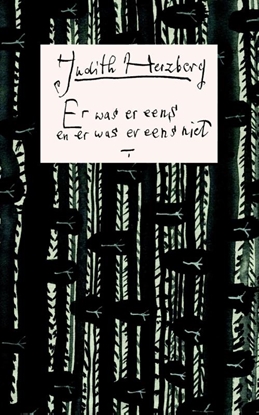 Judith Herzberg
Er was er eens
en er was er eens niet